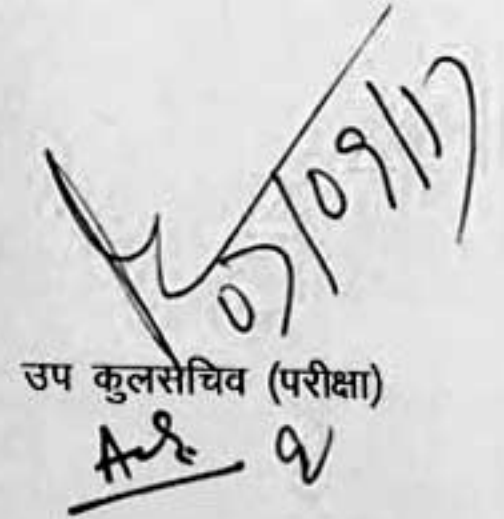 07/09/17
उप कुलसचिव (परीक्षा)